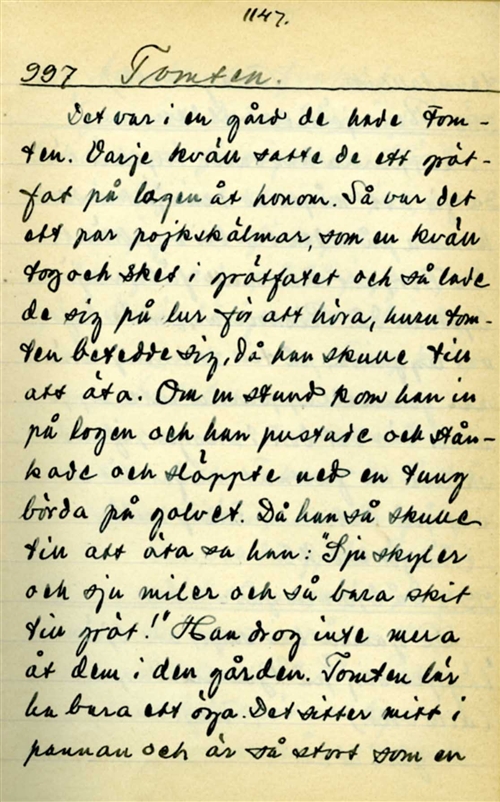 1147.
997 Tomten.
Det var i en gård de hade Tom-
ten. Varje kväll satte de ett gröt-
fat på logen åt honom. Så var det
ett par pojkskälmar, som en kväll
tog och sket i grötfatet och så lade
de sig på lur för att höra, huru tom-
ten betedde sig, då han skulle till
att äta. Om en stund kom han in
på logen och han pustade och stån-
kade och släppte ned en tung
börda på golvet. Då han så skulle
till att äta sa han: "Sju skyler
och sju miler och så bara skit
till gröt!" Han drog inte mera
åt dem i den gården. Tomten lär
ha bara ett öga. Det sitter mitt i
pannan och är så stort som en